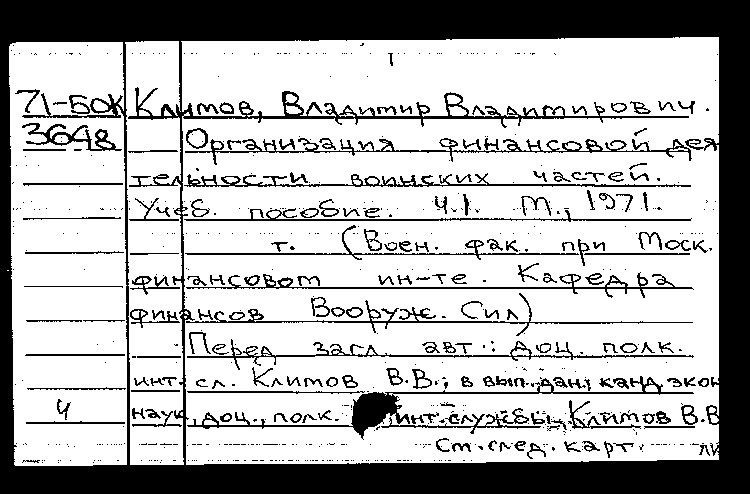 71-БОК Климов, Владимир Владимирович.
3648 Организация финансовой дея
тельности воинских частей.
Учеб. пособие. Ч.1. М., 1971.
т. (Воен. фак. при Моск.
финансовом ин-те. Кафедра
финансов Вооруж. Сил)
Перед загл. авт.: доц. полк.
инт. сл. Климов В.В.; в вып. дан; канд. экон
4 наук, доц., полк. инт. службы Климов В.В
См. след. карт.